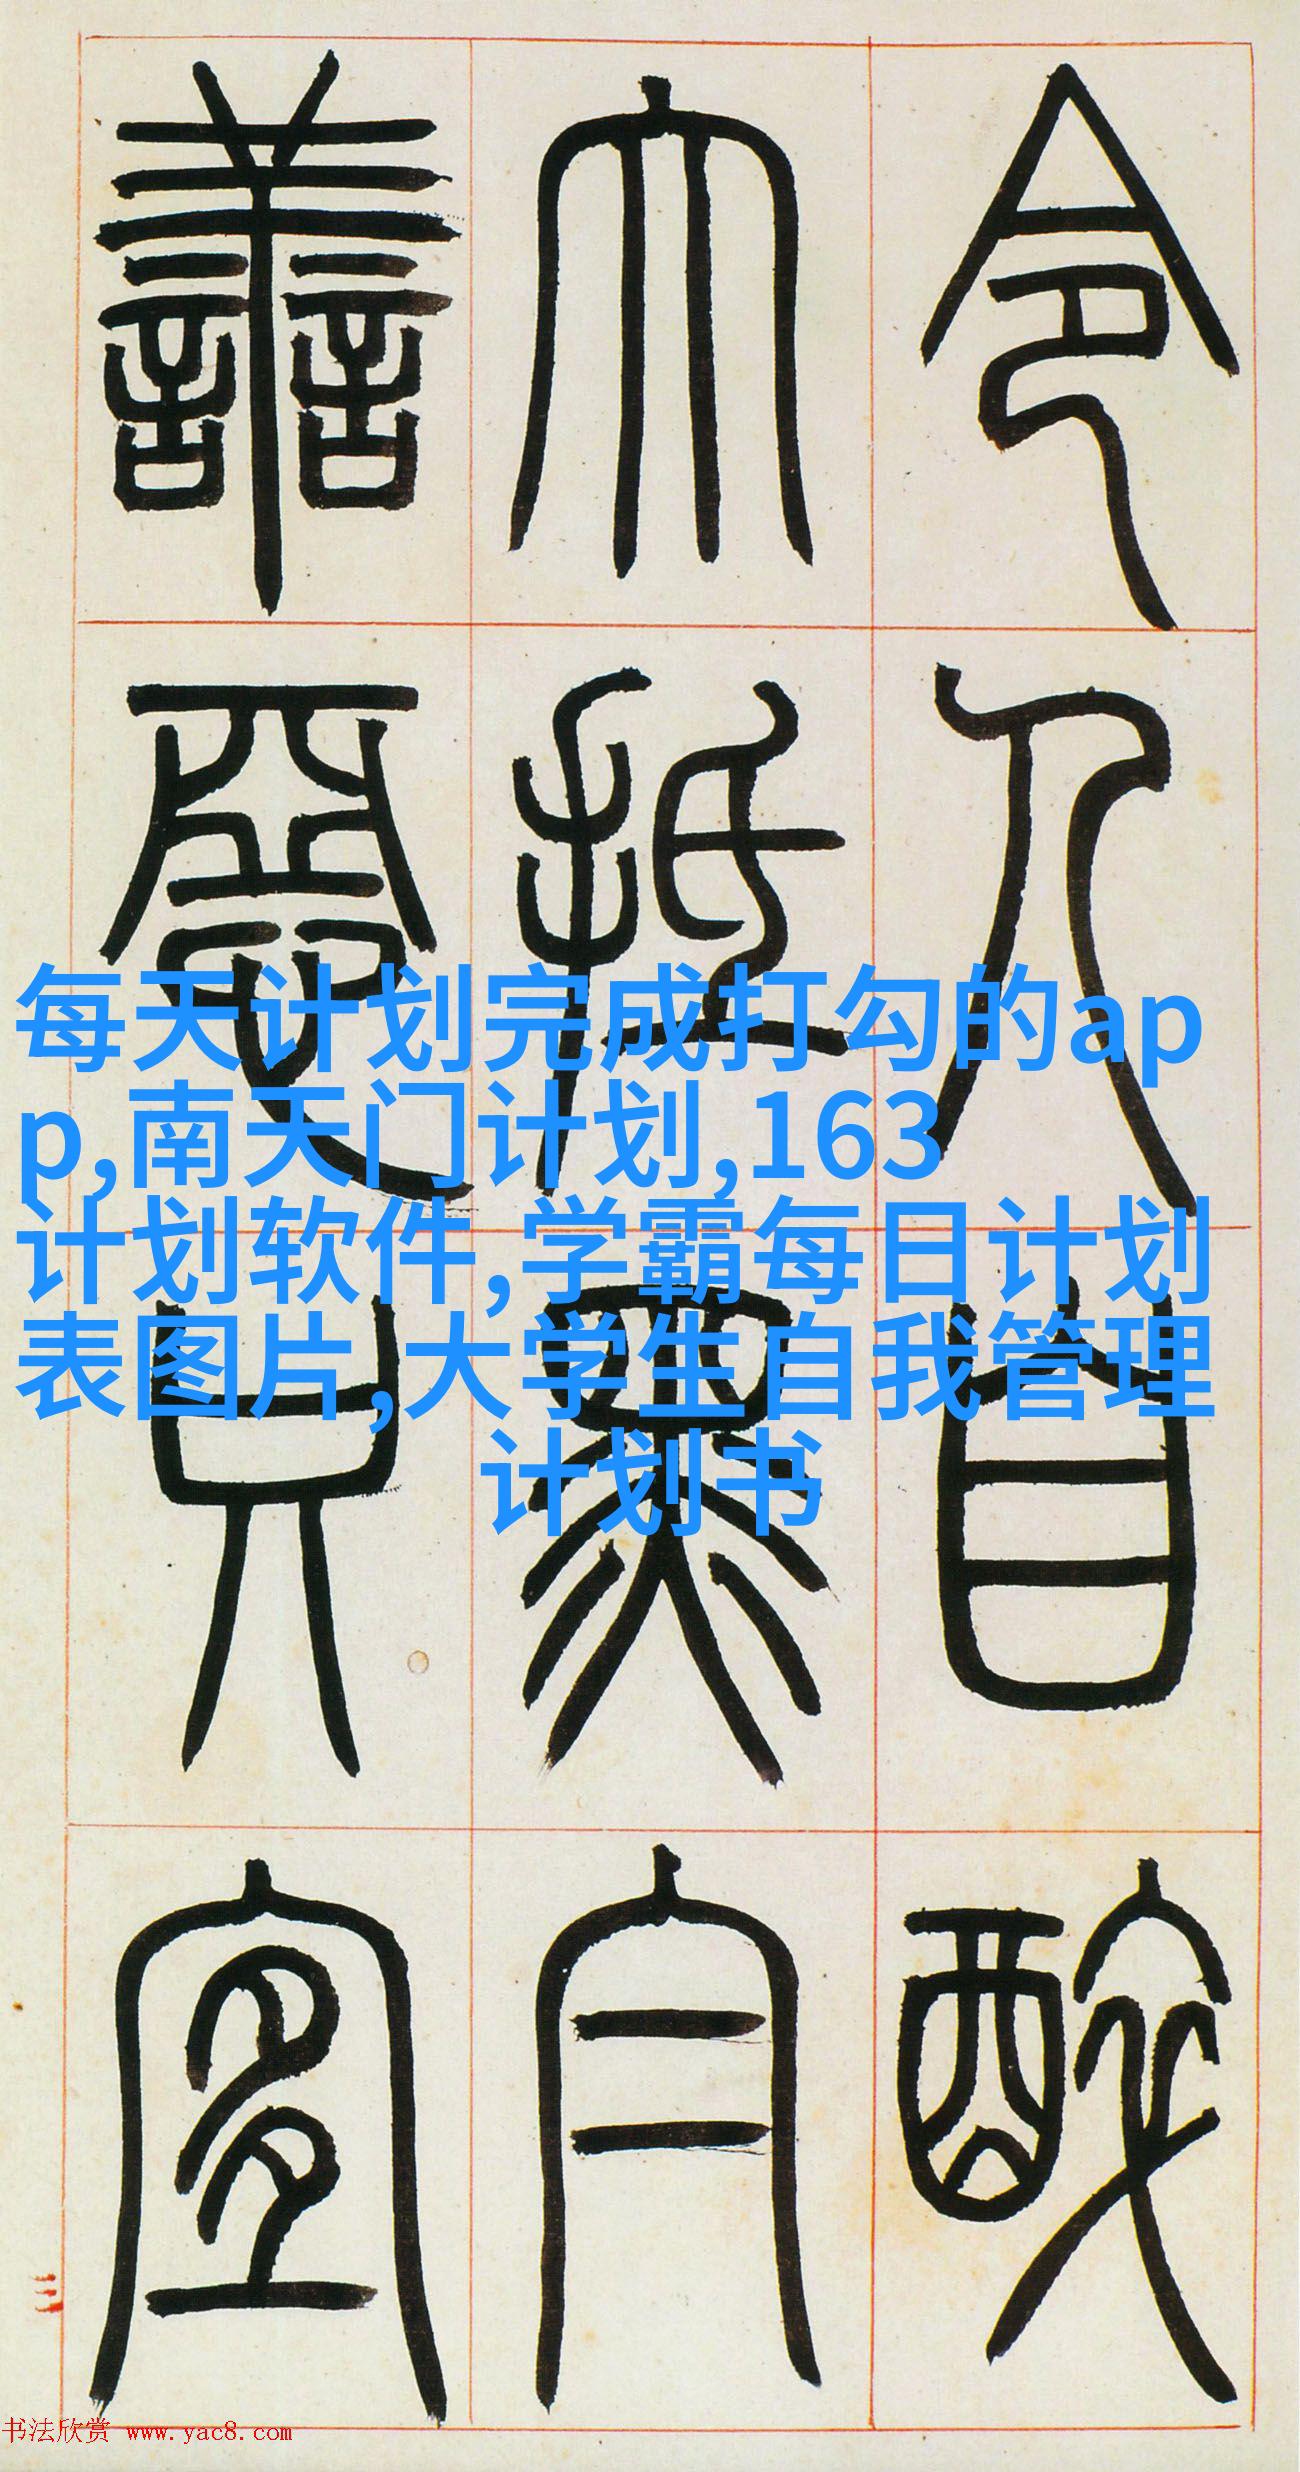 令人自醉
大抵
善只宜
每天计划完成打勾的ap
p,南天门计划,163
计划软件,学霸每日计划
表图片,大学生自我管理
计划书
书法欣赏 www.yac8.com